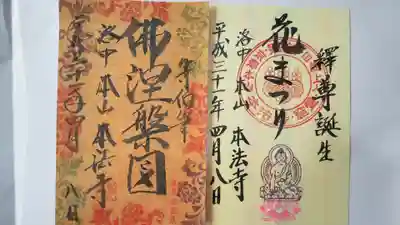 等伯筆
佛涅槃図
洛中 本山 本法寺
平成三十一年四月八日
釋尊誕生
花まつり
洛中 本山 本法寺
平成三十一年四月八日